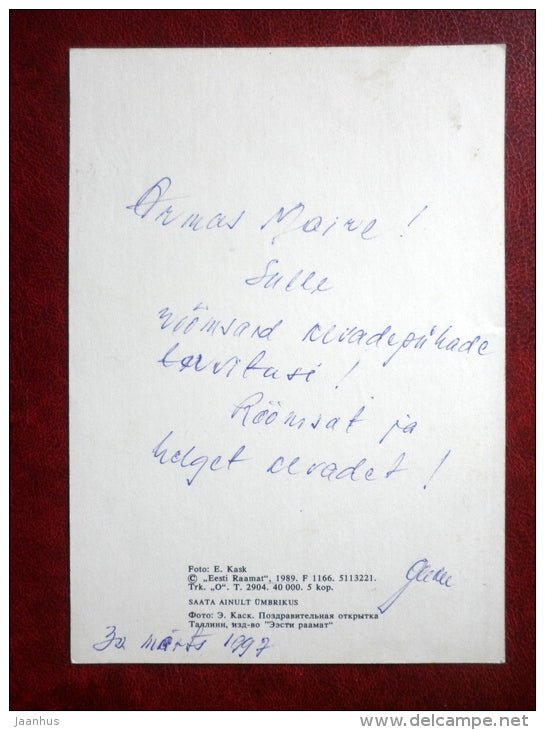 Armas Maire!
Sulle
rõõmsaid kevadepühade
tervitusi!
Rõõmsat ja
helget kevadet!
Foto: E. Kask
© „Eesti Raamat“, 1989. F 1166. 5113221.
Trk. „O“. T. 2904. 40 000. 5 kop.
SAATA AINULT ÜMBRIKUS
Фото: Э. Каск. Поздравительная открытка
Таллинн, изд-во "Ээсти раамат"
märts 1997
jaanhus
www.delcampe.net